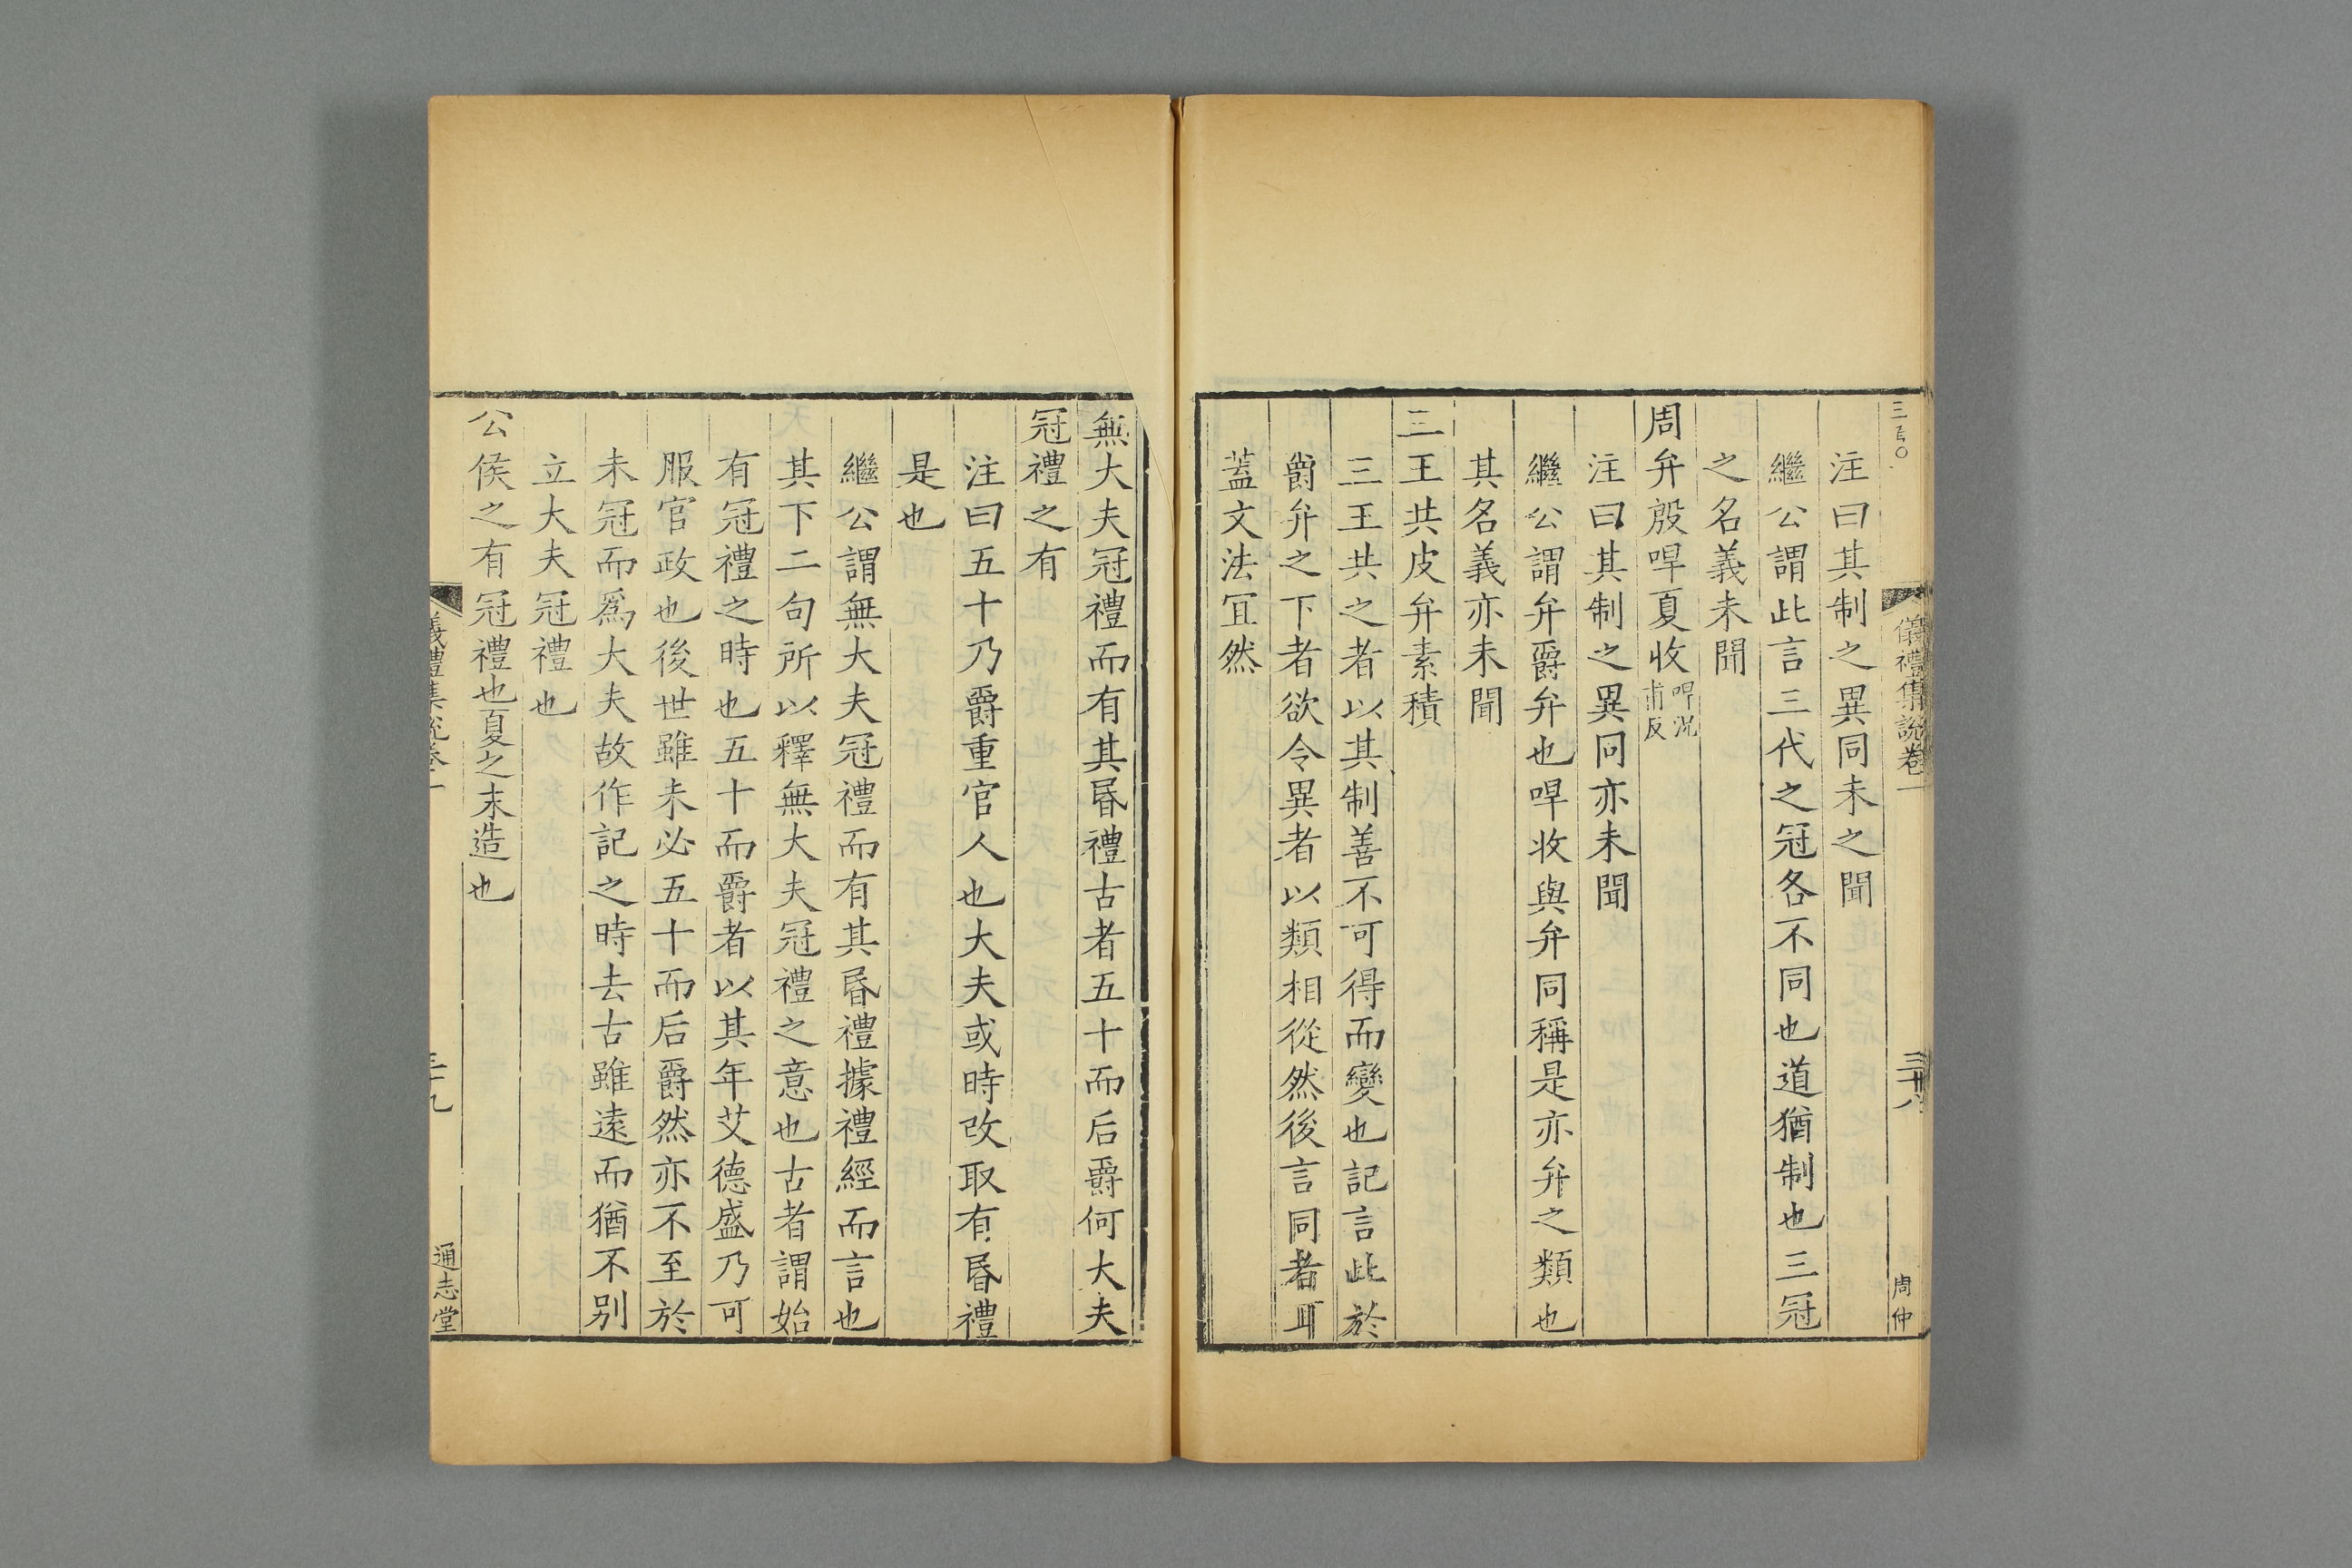 儀禮集說卷一
三十八
周仲
注曰其制之異同未之聞
繼公謂此言三代之冠各不同也道猶制也三冠
之名義未聞
周弁殷哻夏收哻況甫反
注曰其制之異同亦未聞
繼公謂弁爵弁也哻收與弁同稱是亦弁之類也
其名義亦未聞
三王共皮弁素積
三王共之者以其制善不可得而變也記言此於
爵弁之下者欲令異者以類相從然後言同者耳
蓋文法宜然
無大夫冠禮而有其昏禮古者五十而后爵何大夫
冠禮之有
注曰五十乃爵重官人也大夫或時改取有昏禮
是也
繼公謂無大夫冠禮而有其昏禮據禮經而言也
其下二句所以釋無大夫冠禮之意也古者謂始
有冠禮之時也五十而爵者以其年艾德盛乃可
服官政也後世雖未必五十而后爵然亦不至於
未冠而爲大夫故作記之時去古雖遠而猶不别
立大夫冠禮也
公侯之有冠禮也夏之末造也
儀禮集說卷一
三十九
通志堂